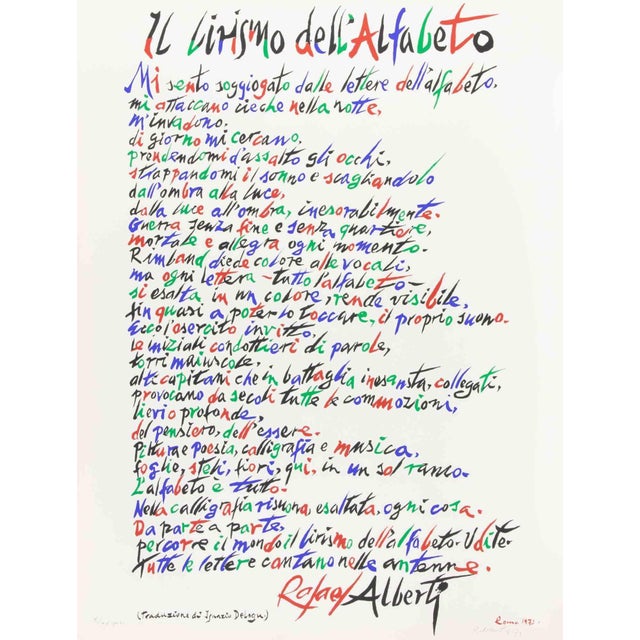 Il lirismo dell'Alfabeto
Mi sento soggiogato dalle lettere dell'alfabeto.
mi attaccano cieche nella notte,
m'invadono.
di giorno mi cercano.
prendendomi d'assalto gli occhi,
strappandomi il sonno e scagliandolo
dall'ombra alla luce,
dalla luce all'ombra, inesorabilmente.
Guerra senza fine e senza quartiere,
mortale e allegra ogni momento.
Rimbaud diede colore alle vocali,
ma ogni lettera - tutto l'alfabeto -
si esalta in un colore, rende visibile,
fin quasi a poterlo toccare, il proprio suono.
Ecco l'esercito invitto,
le iniziali condottieri di parole,
torri maiuscole,
alti capitani che in battaglia inesausta, collegati,
provocano da secoli tutte le commozioni,
lievi o profonde,
del pensiero, dell'essere.
Pittura e poesia, calligrafia e musica,
foglie, steli, fiori, qui, in un sol ramo.
L'alfabeto è tutto.
Nella calligrafia risuona, esaltata, ogni cosa.
Da parte a parte,
percorre il mondo il lirismo dell'alfabeto. Udite.
Tutte le lettere cantano nelle antenne.
Rafael Alberti
(Traduzione di Ignazio Delogu)
Roma 1972